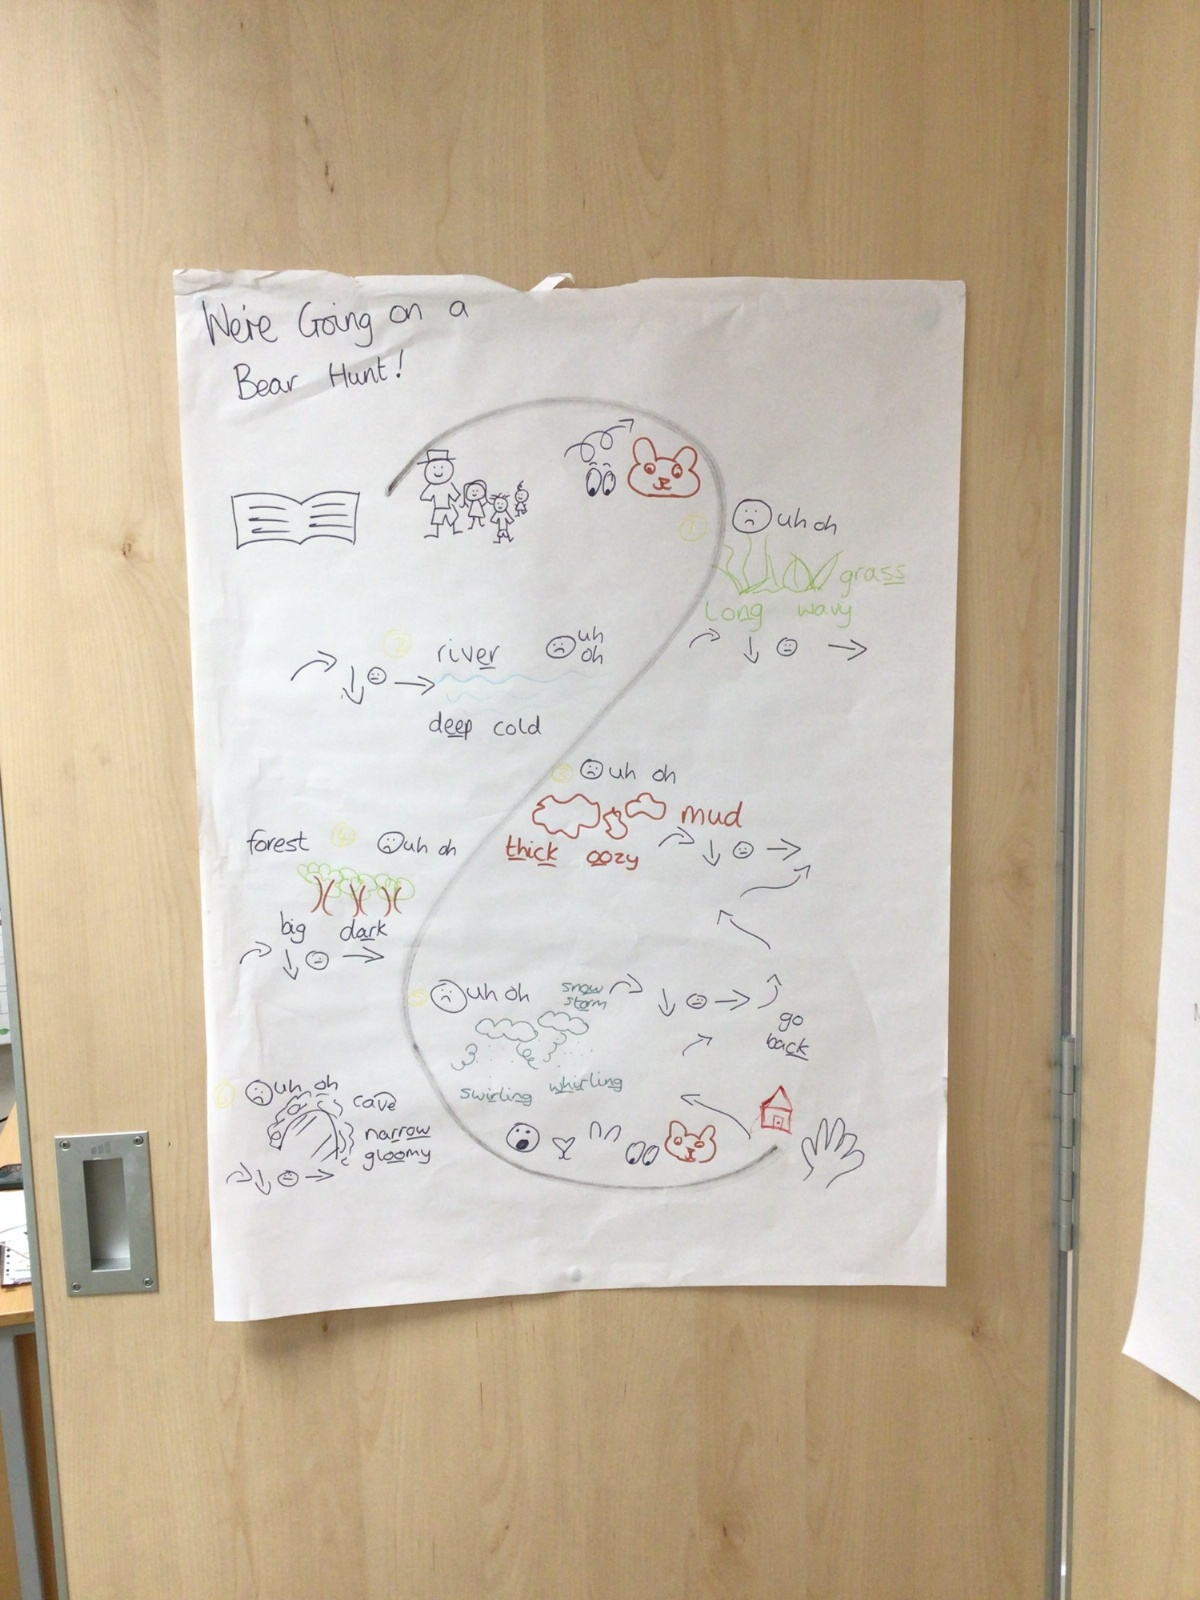 We're Going on a
Bear Hunt!
1
uh oh
grass
long wavy
2
river
uh
oh
deep cold
3
uh oh
mud
thick oozy
forest
4
uh oh
big dark
5
uh oh
snow
storm
swirling whirling
go
back
6
uh oh
cave
narrow
gloomy